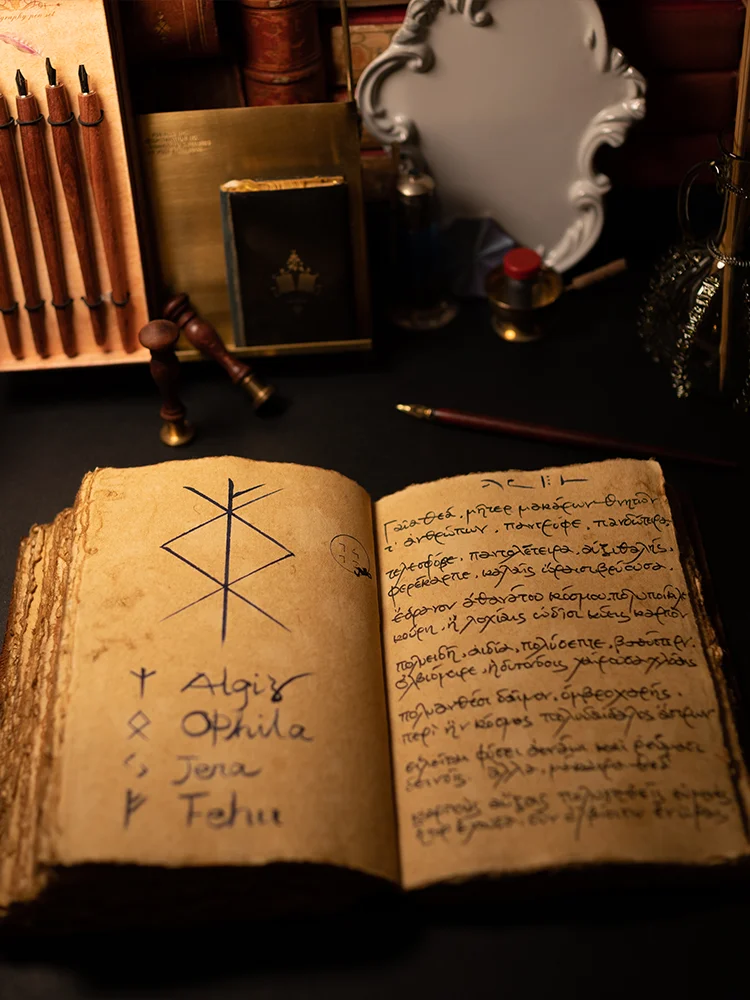 ᛉ Algiz
ᛟ Ophila
ᛃ Jera
ᚠ Fehu
Γαῖα θεά, μῆτερ μακάρων θνητῶν
τ' ἀνθρώπων, παντρόφε, πανδώτειρα,
τελεσφόρε, παντολέτειρα, αὐξιθαλής,
φερέκαρπε, καλαῖς ὥραισι βρύουσα,
ἕδρανον ἀθανάτου κόσμου, πολυποίκιλε
κούρη, ἣ λοχίαις ὠδῖσι κύεις καρπὸν
πολυειδῆ, ἀιδία, πολύσεπτε, βαθύστερν',
ὀλβιόμοιρε, ἡδυπνόοις χαίρουσα χλόαις
πολυανθέσι δαῖμον, ὀμβροχαρής,
περὶ ἣν κόσμος πολυδαίδαλος ἄστρων
εἱλεῖται φύσει ἀενάωι καὶ ῥεύμασι
δεινοῖς. ἀλλά, μάκαιρα θεά
καρποὺς αὔξοις πολυγηθεῖς